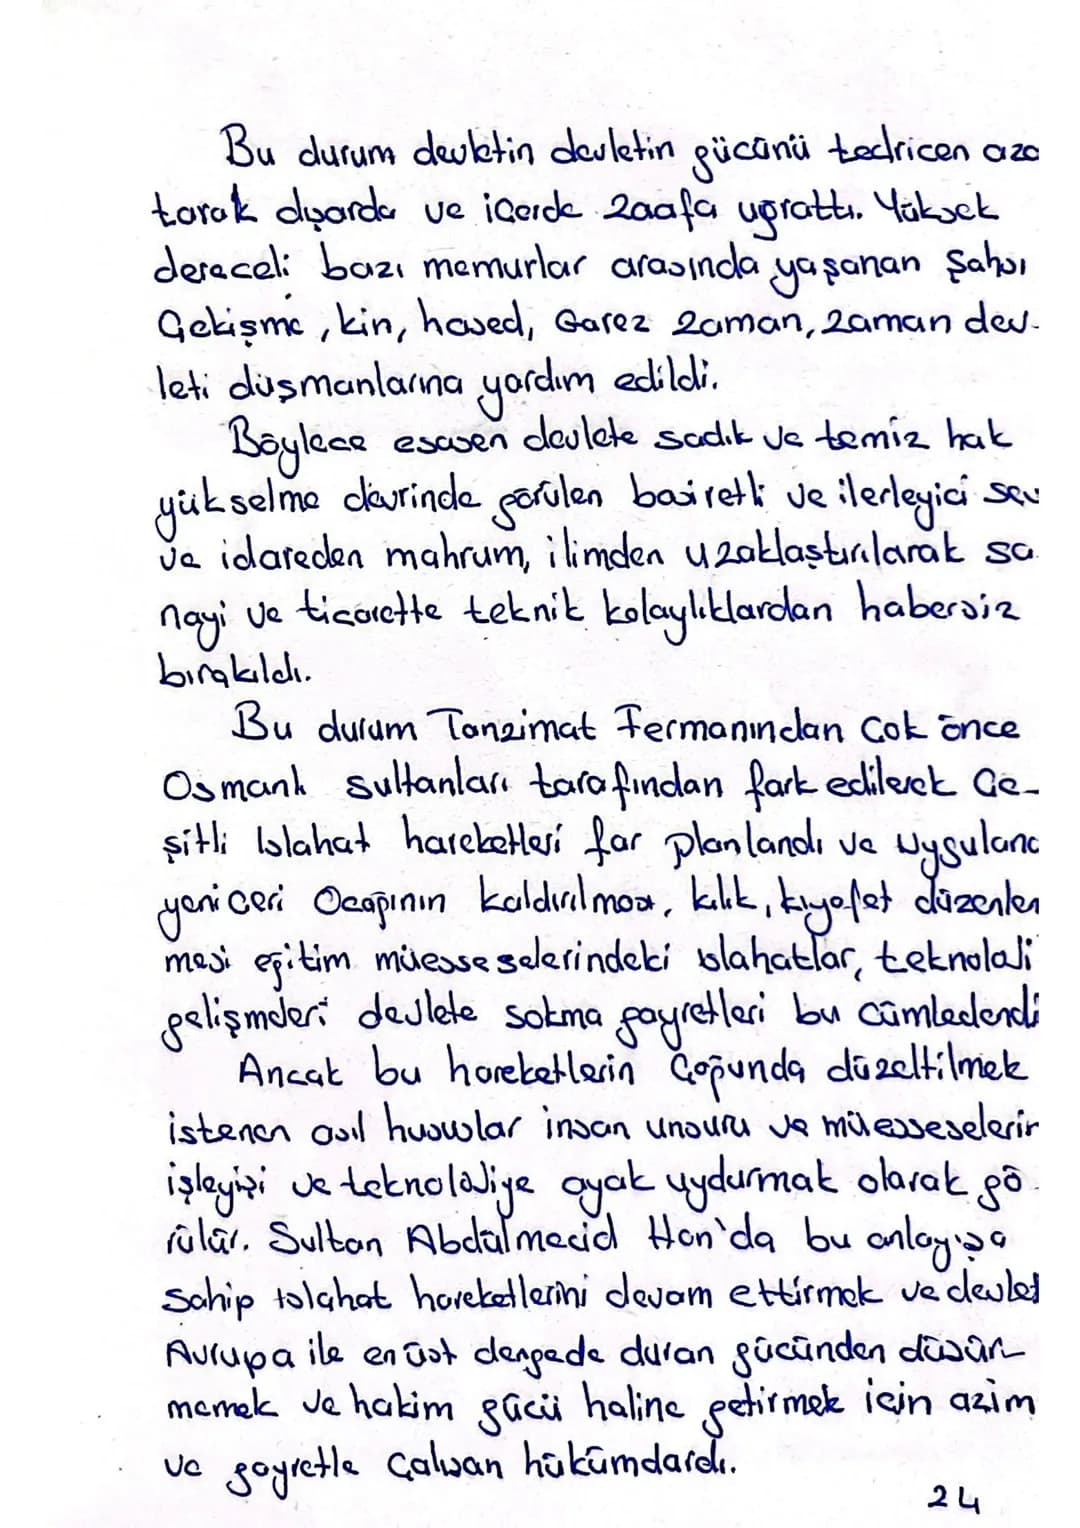 Bu durum devletin devletin gücünü tedricen aza
tarak dışarda ve içerde zaafa uğrattı. Yüksek
dereceli bazı memurlar arasında yaşanan Şahsı
Çekişme, kin, hased, Garez zaman, zaman dev-
leti düşmanlarına yardım edildi.
Böylece esasen devlete sadık ve temiz hak
yükselme devrinde görülen basiretli ve ilerleyici sev
ve idareden mahrum, ilimden uzaklaştırılarak sa
nayi ve ticarette teknik kolaylıklardan habersiz
bırakıldı.
Bu durum Tanzimat Fermanından çok önce
Osmanlı sultanları tarafından fark edilerek Çe-
şitli Islahat hareketleri far planlandı ve uygulanc
yeniçeri Ocağının kaldırılması, kılık, kıyafet düzenlen
mesi eğitim müesseselerindeki ıslahatlar, teknolaji
gelişmderi devlete sokma gayretleri bu cümledendi
Ancak bu hareketlerin Çoğunda düzeltilmek
istenen asıl hususlar insan unsuru ve müesseselerin
işleyişi ve teknolojiye ayak uydurmak olarak gö
rülür. Sultan Abdülmecid Han'da bu anlayışa
Sahip ıslahat hareketlerini devam ettirmek ve devlet
Avrupa ile en üst dengede duran gücünden düşür-
memek ve hakim gücü haline getirmek için azim
ve gayretle Çalışan hükümdardı.
24